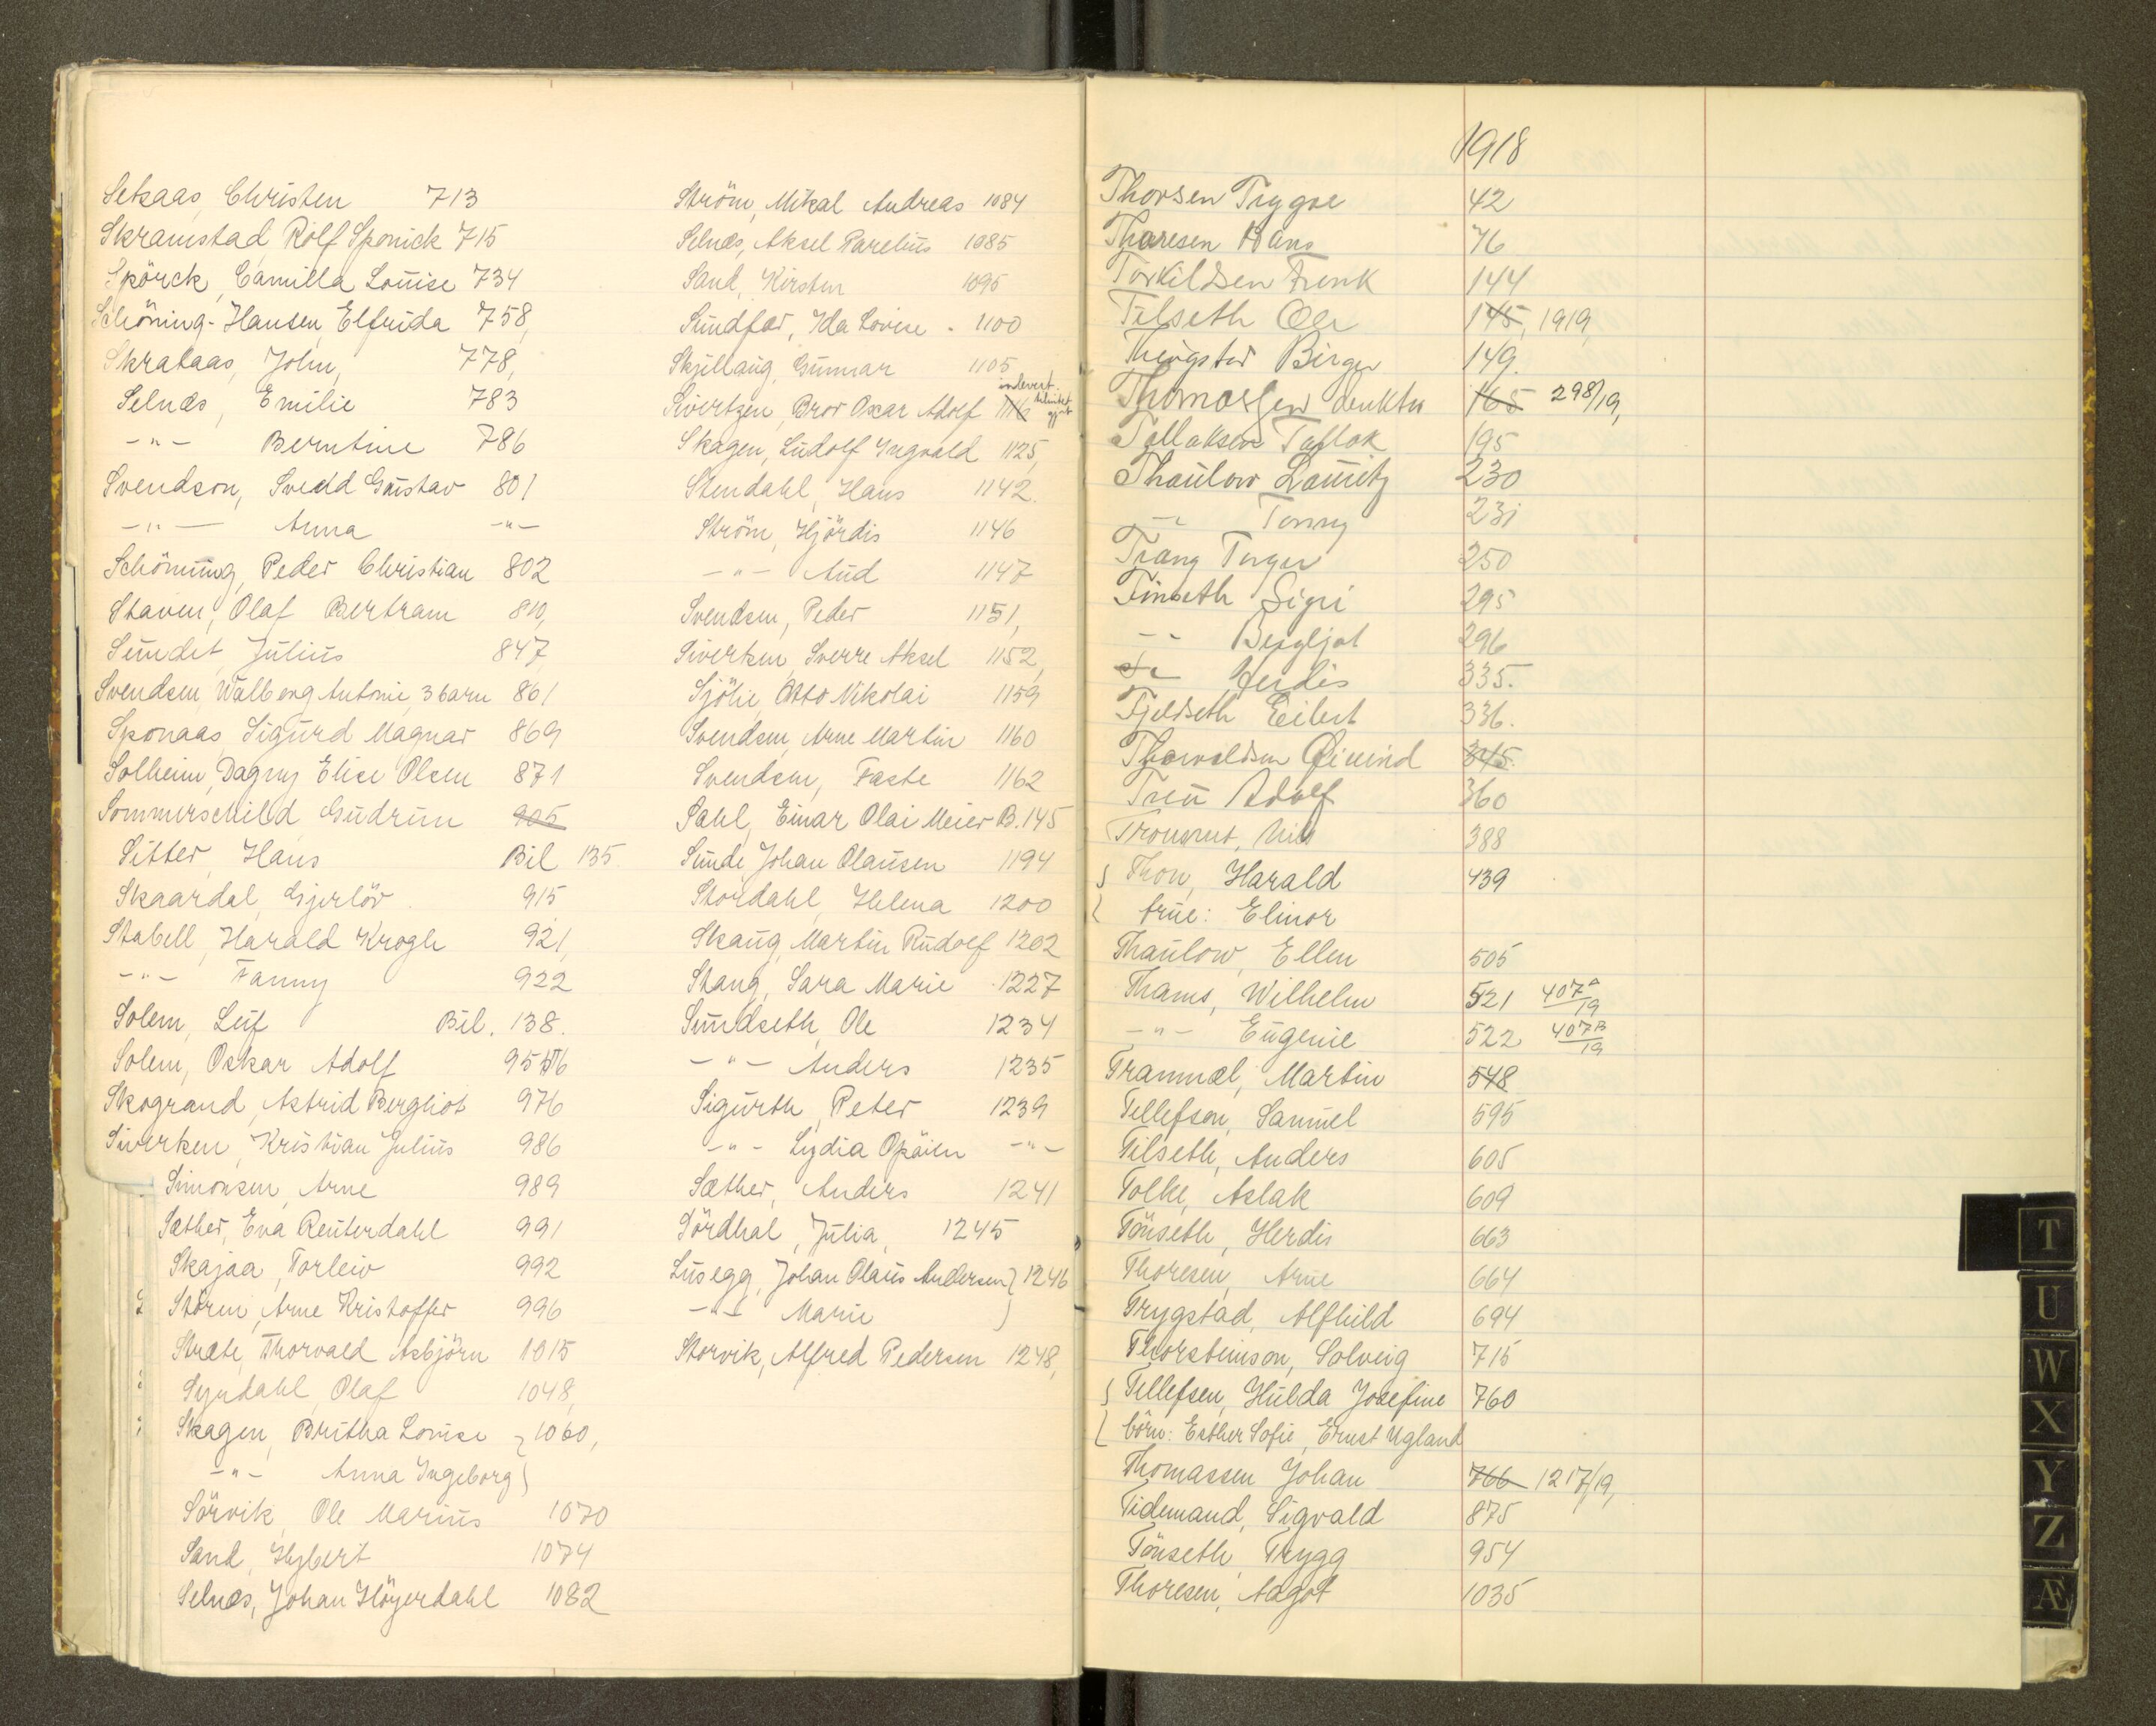 Setsaas, Christen 713
Skramstad, Rolf Sponick 715
Spörck, Camilla Louise 734
Schöning-Hansen, Elfrida 758,
Skrataas, John, 778,
Selnæs, Emilie 783
-"- Berntine 786
Svendson, Svedd Gustav 801
-"- Anna -"-
Schöning, Peder Christian 802
Staven, Olaf Bertram 810,
Sundet Julius 847,
Svendsen, Walborg Antonie, 3 barn 861
Sponaas, Sigurd Magnar 869
Solheim, Dagny Elise Olsen 871
Sommerschild Gudrun 905
Sitter, Hans Bil 135.
Skaardal, Gjerlöv. 915
Stabell, Harald Krogh 921,
-"- Fanny 922
Solem, Leif Bil. 138.
Solem, Oskar Adolf 956
Skogrand, Astrid Bergliot 976
Sivertsen, Kristian Julius 986
Simonsen, Arne 989
Sæther, Eva Reuterdahl 991
Skajaa, Torleiv 992
Stören, Arne Kristoffer 996
Stræte, Thorvald Asbjörn 1015
Syndahl, Olaf 1048,
Skagen, Britha Lovise } 1060,
-"- Anna Ingeborg }
Sörvik, Ole Marius 1070
Sand, Hybert 1074
Selnæs, Johan Höyerdahl 1082
Ström, Mikal Andreas 1084
Selnæs, Aksel Parelius 1085
Sand, Kirsten 1095
Sundfær, Ida Lovise - 1100
Skjellaug, Gunnar 1105
Sivertzen, Bror Oscar Adolf 1116 indevert.
Skagen, Ludolf Ingvald 1125,
Stendahl, Hans 1142.
Ström, Hjördis 1146
-"- Aud 1147
Svendsen, Peder 1151,
Sivertsen, Sverre Aksel 1152,
Sjölie, Otto Nikolai 1159
Svendsen, Arne Martin 1160
Svendsen, Faste 1162
Sahl, Einar Olai Meier B. 145
Sunde, Johan Olausen 1194
Stordahl, Helena 1200
Skaug, Martin Rudolf 1202
Stang, Sara Marie 1227
Sundseth, Ole 1234
-"- Anders 1235
Sigurth, Peter 1239
-"- Lydia Opäien -"-
Sæther, Anders 1241
Sördhal, Julia, 1245
Lusegg, Johan Olaus Andersen } 1246
-"- Marie }
Storvik, Alfred Pedersen 1248,
1918
Thorsen Trygve 42
Thoresen Hans 76
Torkildsen Frenk 144
Tilseth Ole 145, 1919,
Birger 149.
Thomassen 165 298/19,
Tollaksen Tollak 195
Thaulow Lauritz 230
-"- Tonny 231
Trang Torger 250
Tinseth Sigri 295
-"- Bergljot 296
Herdis 335.
Fjeldseth Eilert 336.
Thorvaldsen Øivind 345.
Treu Adolf 360
Nils 388
{ Thon, Harald 439
{ frue: Elinor
Thaulow, Ellen 505
Thams, Wilhelm 521 407A/19
-"- Eugenie 522 407B/19
Tranmæl, Martin 548
Tellefsen, Samuel 595
Tilseth, Anders 605
Tolke, Aslak 609
Tönseth, Herdis 663
Thoresen, Arne 664
Trygstad, Alfhild 694
Thorsteinson, Solveig 715
{ Tellefsen, Hulda Josefine 760
{ börn: Esther Sofie, Ernst Ugland
Thomassen Johan 766 1217/19,
Tidemand, Sigvald 875
Tönseth, Trygg 954
Thoresen, Aagot 1035
T
U
W
X
Y
Z
Æ